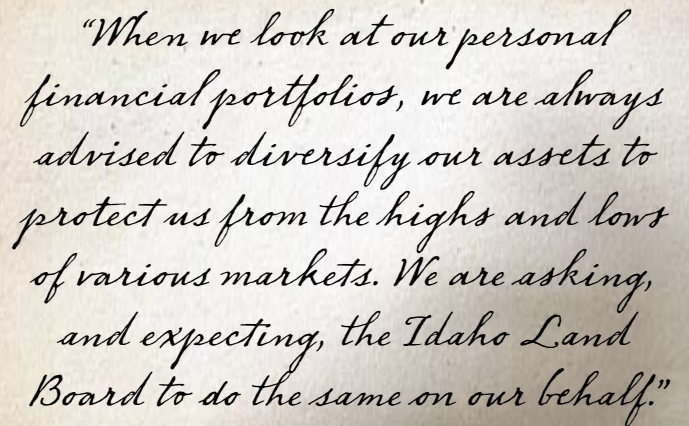 “When we look at our personal
financial portfolios, we are always
advised to diversify our assets to
protect us from the highs and lows
of various markets. We are asking,
and expecting, the Idaho Land
Board to do the same on our behalf.”